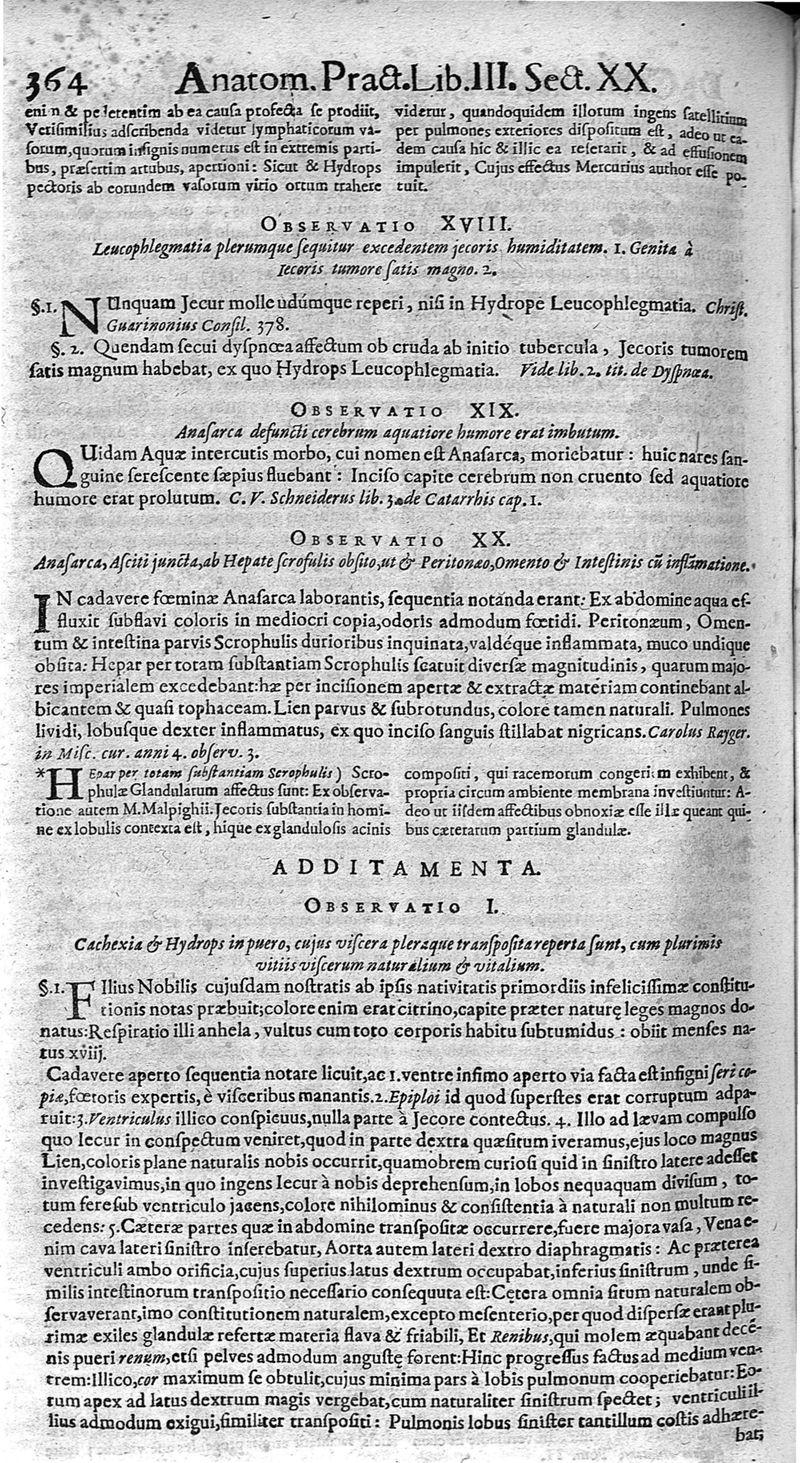 364 Anatom. Pract. Lib. III. Sect. XX.
enim & pedetentim ab ea causa profecta se prodiit,
Verisimilius adscribenda videtur lymphaticorum va-
sorum, quorum insignis numerus est in extremis parti-
bus, præsertim artubus, apertioni: Sicut & Hydrops
pectoris ab eorundem vasorum vitio ortum trahere
videtur, quandoquidem illorum ingens satellitium
per pulmones exteriores dispositum est, adeo ut ea-
dem causa hic & illic ea reserarit, & ad effusionem
impulerit, Cujus effectus Mercurius author esse po-
tuit.
OBSERVATIO XVIII.
Leucophlegmatia plerumque sequitur excedentem jecoris humiditatem. 1. Genita à
Iecoris tumore satis magno. 2.
§.1. NUnquam Jecur molle udúmque reperi, nisi in Hydrope Leucophlegmatia. Christ.
Guarinonius Consil. 378.
§. 2. Quendam secui dyspnœa affectum ob cruda ab initio tubercula, Jecoris tumorem
satis magnum habebat, ex quo Hydrops Leucophlegmatia. Vide lib. 2. tit. de Dyspnœa.
OBSERVATIO XIX.
Anasarca defuncti cerebrum aquatiore humore erat imbutum.
QUidam Aquæ intercutis morbo, cui nomen est Anasarca, moriebatur: huic nares san-
guine serescente sæpius fluebant: Inciso capite cerebrum non cruento sed aquatiore
humore erat prolutum. C. V. Schneiderus lib. 3. de Catarrhis cap. 1.
OBSERVATIO XX.
Anasarca, Asciti juncta, ab Hepate scrofulis obsito, ut & Peritonæo, Omento & Intestinis cũ inflãmatione.
IN cadavere fœminæ Anasarca laborantis, sequentia notanda erant: Ex abdomine aqua ef-
fluxit subflavi coloris in mediocri copia, odoris admodum fœtidi. Peritonæum, Omen-
tum & intestina parvis Scrophulis durioribus inquinata, valdéque inflammata, muco undique
obsita: Hepar per totam substantiam Scrophulis scatuit diversæ magnitudinis, quarum majo-
res imperialem excedebant: hæ per incisionem apertæ & extractæ materiam continebant al-
bicantem & quasi tophaceam. Lien parvus & subrotundus, colore tamen naturali. Pulmones
lividi, lobusque dexter inflammatus, ex quo inciso sanguis stillabat nigricans. Carolus Rayger.
in Misc. cur. anni 4. observ. 3.
*HEpar per totam substantiam Scrophulis) Scro-
phulæ Glandularum affectus sunt: Ex observa-
tione autem M. Malpighii. Jecoris substantia in homi-
ne ex lobulis contexta est, hique ex glandulosis acinis
compositi, qui racemorum congeriem exhibent, &
propria circum ambiente membrana investiuntur: A-
deo ut iisdem affectibus obnoxiæ esse illæ queant qui-
bus cæterarum partium glandulæ.
ADDITAMENTA.
OBSERVATIO I.
Cachexia & Hydrops in puero, cujus viscera pleraque transposita reperta sunt, cum plurimis
vitiis viscerum naturalium & vitalium.
§.1. FIlius Nobilis cujusdam nostratis ab ipsis nativitatis primordiis infelicissimæ constitu-
tionis notas præbuit; colore enim erat citrino, capite præter naturę leges magnos do-
natus: Respiratio illi anhela, vultus cum toto corporis habitu subtumidus: obiit menses na-
tus xviij.
Cadavere aperto sequentia notare licuit, ac 1. ventre infimo aperto via facta est insigni seri co-
piæ, fœtoris expertis, è visceribus manantis. 2. Epiploi id quod superstes erat corruptum adpa-
ruit: 3. Ventriculus illico conspicuus, nulla parte à Jecore contectus. 4. Illo ad lævam compulso
quo Iecur in conspectum veniret, quod in parte dextra quæsitum iveramus, ejus loco magnus
Lien, coloris plane naturalis nobis occurrit, quamobrem curiosi quid in sinistro latere adesset
investigavimus, in quo ingens Iecur à nobis deprehensum, in lobos nequaquam divisum, to-
tum fere sub ventriculo jacens, colore nihilominus & consistentia à naturali non multum re-
cedens: 5. Cæteræ partes quæ in abdomine transpositæ occurrere, fuere majora vasa, Vena e-
nim cava lateri sinistro inserebatur, Aorta autem lateri dextro diaphragmatis: Ac præterea
ventriculi ambo orificia, cujus superius latus dextrum occupabat, inferius sinistrum, unde si-
milis intestinorum transpositio necessario consequuta est: Cętera omnia situm naturalem ob-
servaverant, imo constitutionem naturalem, excepto mesenterio, per quod dispersæ erant plu-
rimæ exiles glandulæ refertæ materia flava & friabili, Et Renibus, qui molem æquabant decē-
nis pueri renum, etsi pelves admodum angustę forent: Hinc progressus factus ad medium ven-
trem: Illico, cor maximum se obtulit, cujus minima pars à lobis pulmonum cooperiebatur: Eo-
rum apex ad latus dextrum magis vergebat, cum naturaliter sinistrum spectet; ventriculi il-
lius admodum exigui, similiter transpositi: Pulmonis lobus sinister tantillum costis adhære-
bat;